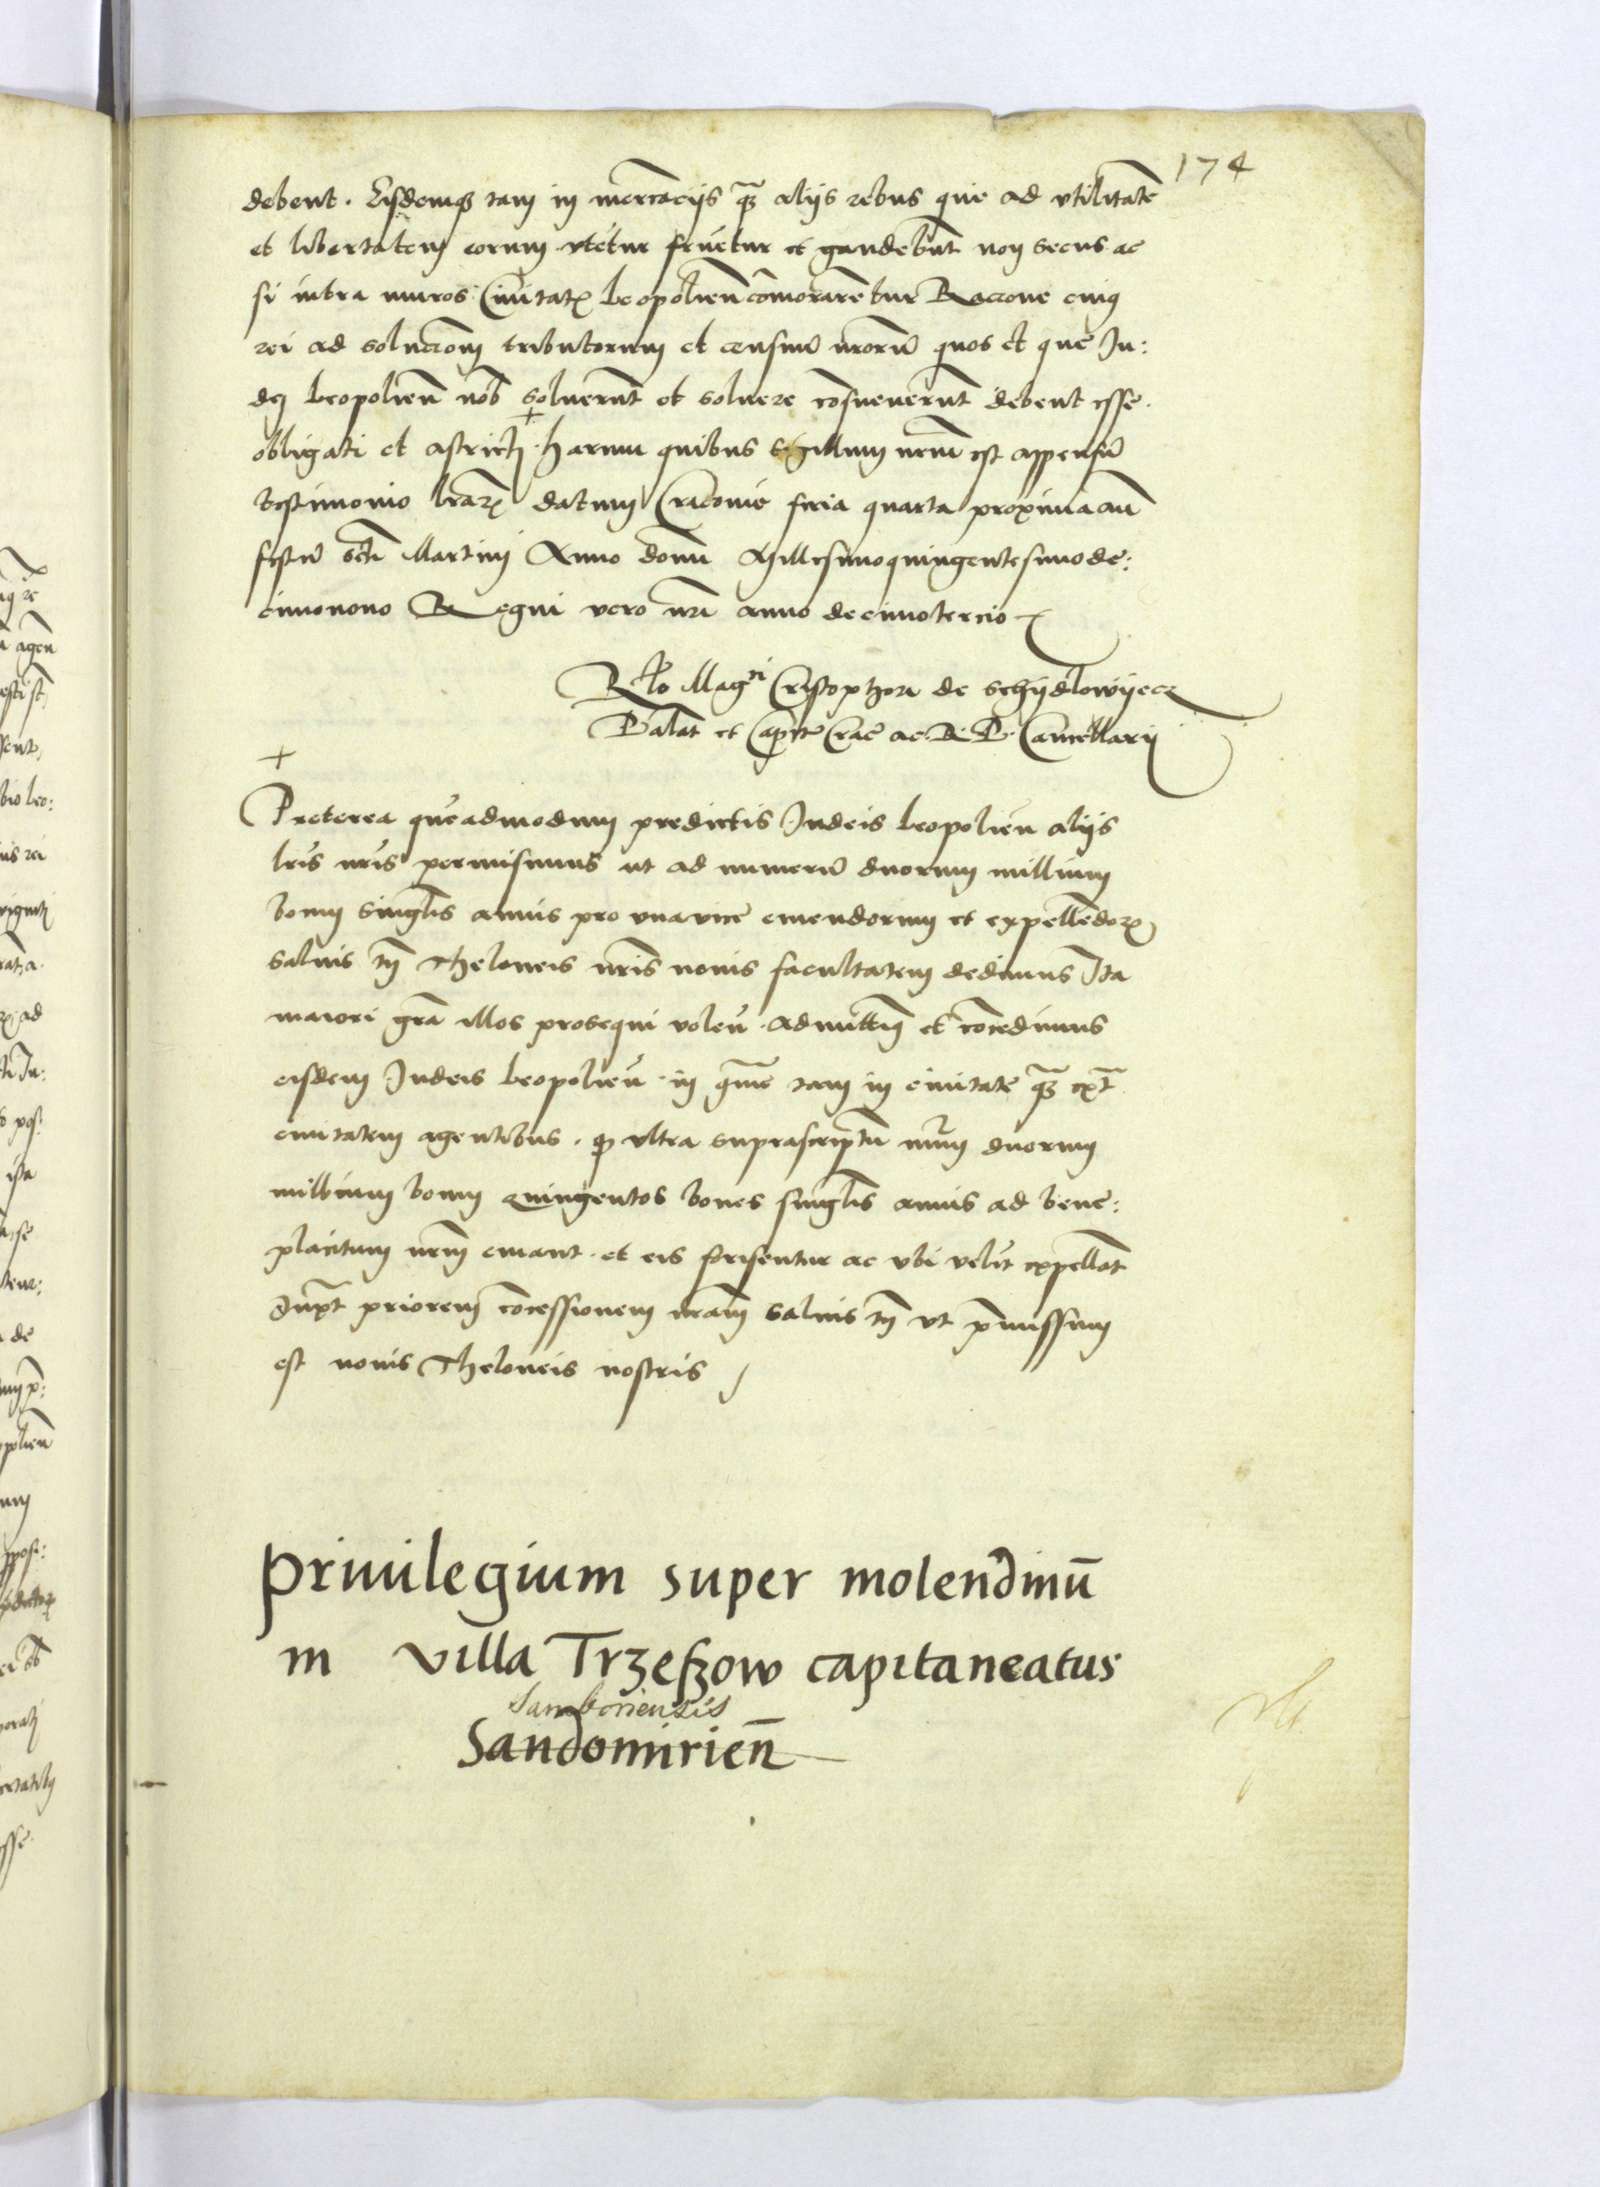 174
debent. Eisdemq3 tam in mercaciis q̄3 aliis rebus que ad utilitatē
et libertatem eorum utētur fruētur et gaudebūt non secus ac
si intra muros Civitat Leopolien̄ cōmorarētur Racione cuius
rei ad solucōm tributorum et censuū nrorū quos et que Ju:
dei Leopolien̄ nob soluerūt et soluere cōsueuerūt debent esse
obligati et astricti + harum quibus sigillum nrm̄ est appensū
testimonio lrar datum Cracouie feria quarta proxima an̄
festū scti Martini Anno domi Millesimoquingentesimode:
cimonono Regni vero nri anno decimotercio
Rlo Magci Cristophori de Schijdlowijecz
Palat et Capite Crac ac R. P. Cancellarij
+
Preterea quēadmodum predictis Judeis Leopolien̄ aliis
lris nris permisimus ut ad numerū duorum millium
boum singlis annis pro una vice emendorum et expellēdor
saluis tn̄ Theloneis nris nouis facultatem dedimus Ita
maiori gra illos prosequi volen̄. admittim et cōcedimus
eisdem Judeis Leopolien̄. in gn̄re tam in ciuitate q̄3 extra
ciuitatem agentibus. q ultra suprascriptū nūm duorum
millium boum Quingentos boues singlis annis ad bene:
placitum nrm̄ emant. et eis forisentur ac ubi velīt expellāt
Juxt priorem cōcessionem nram̄ saluis tn̄ ut p̄missum
est nouis Theloneis nostris
Priuilegium super molendinū
in villa Trzeszow capitaneatus
Samboriensis
Sandomirien̄